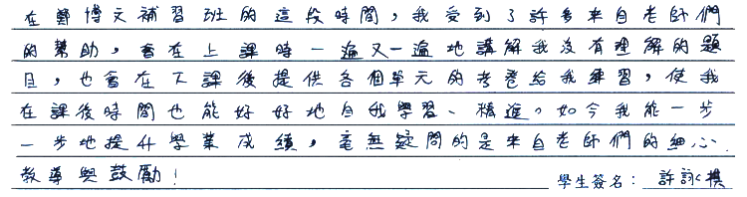 在鄭博文補習班的這段時間，我受到了許多來自老師們
的幫助，會在上課時一遍又一遍地講解我沒有理解的題
目，也會在下課後提供各個單元的考卷給我練習，使我
在課後時間也能好好地自我學習、精進。如今我能一步
一步地提升學業成績，毫無疑問的是來自老師們的細心
教導與鼓勵！
學生簽名：許詠棋